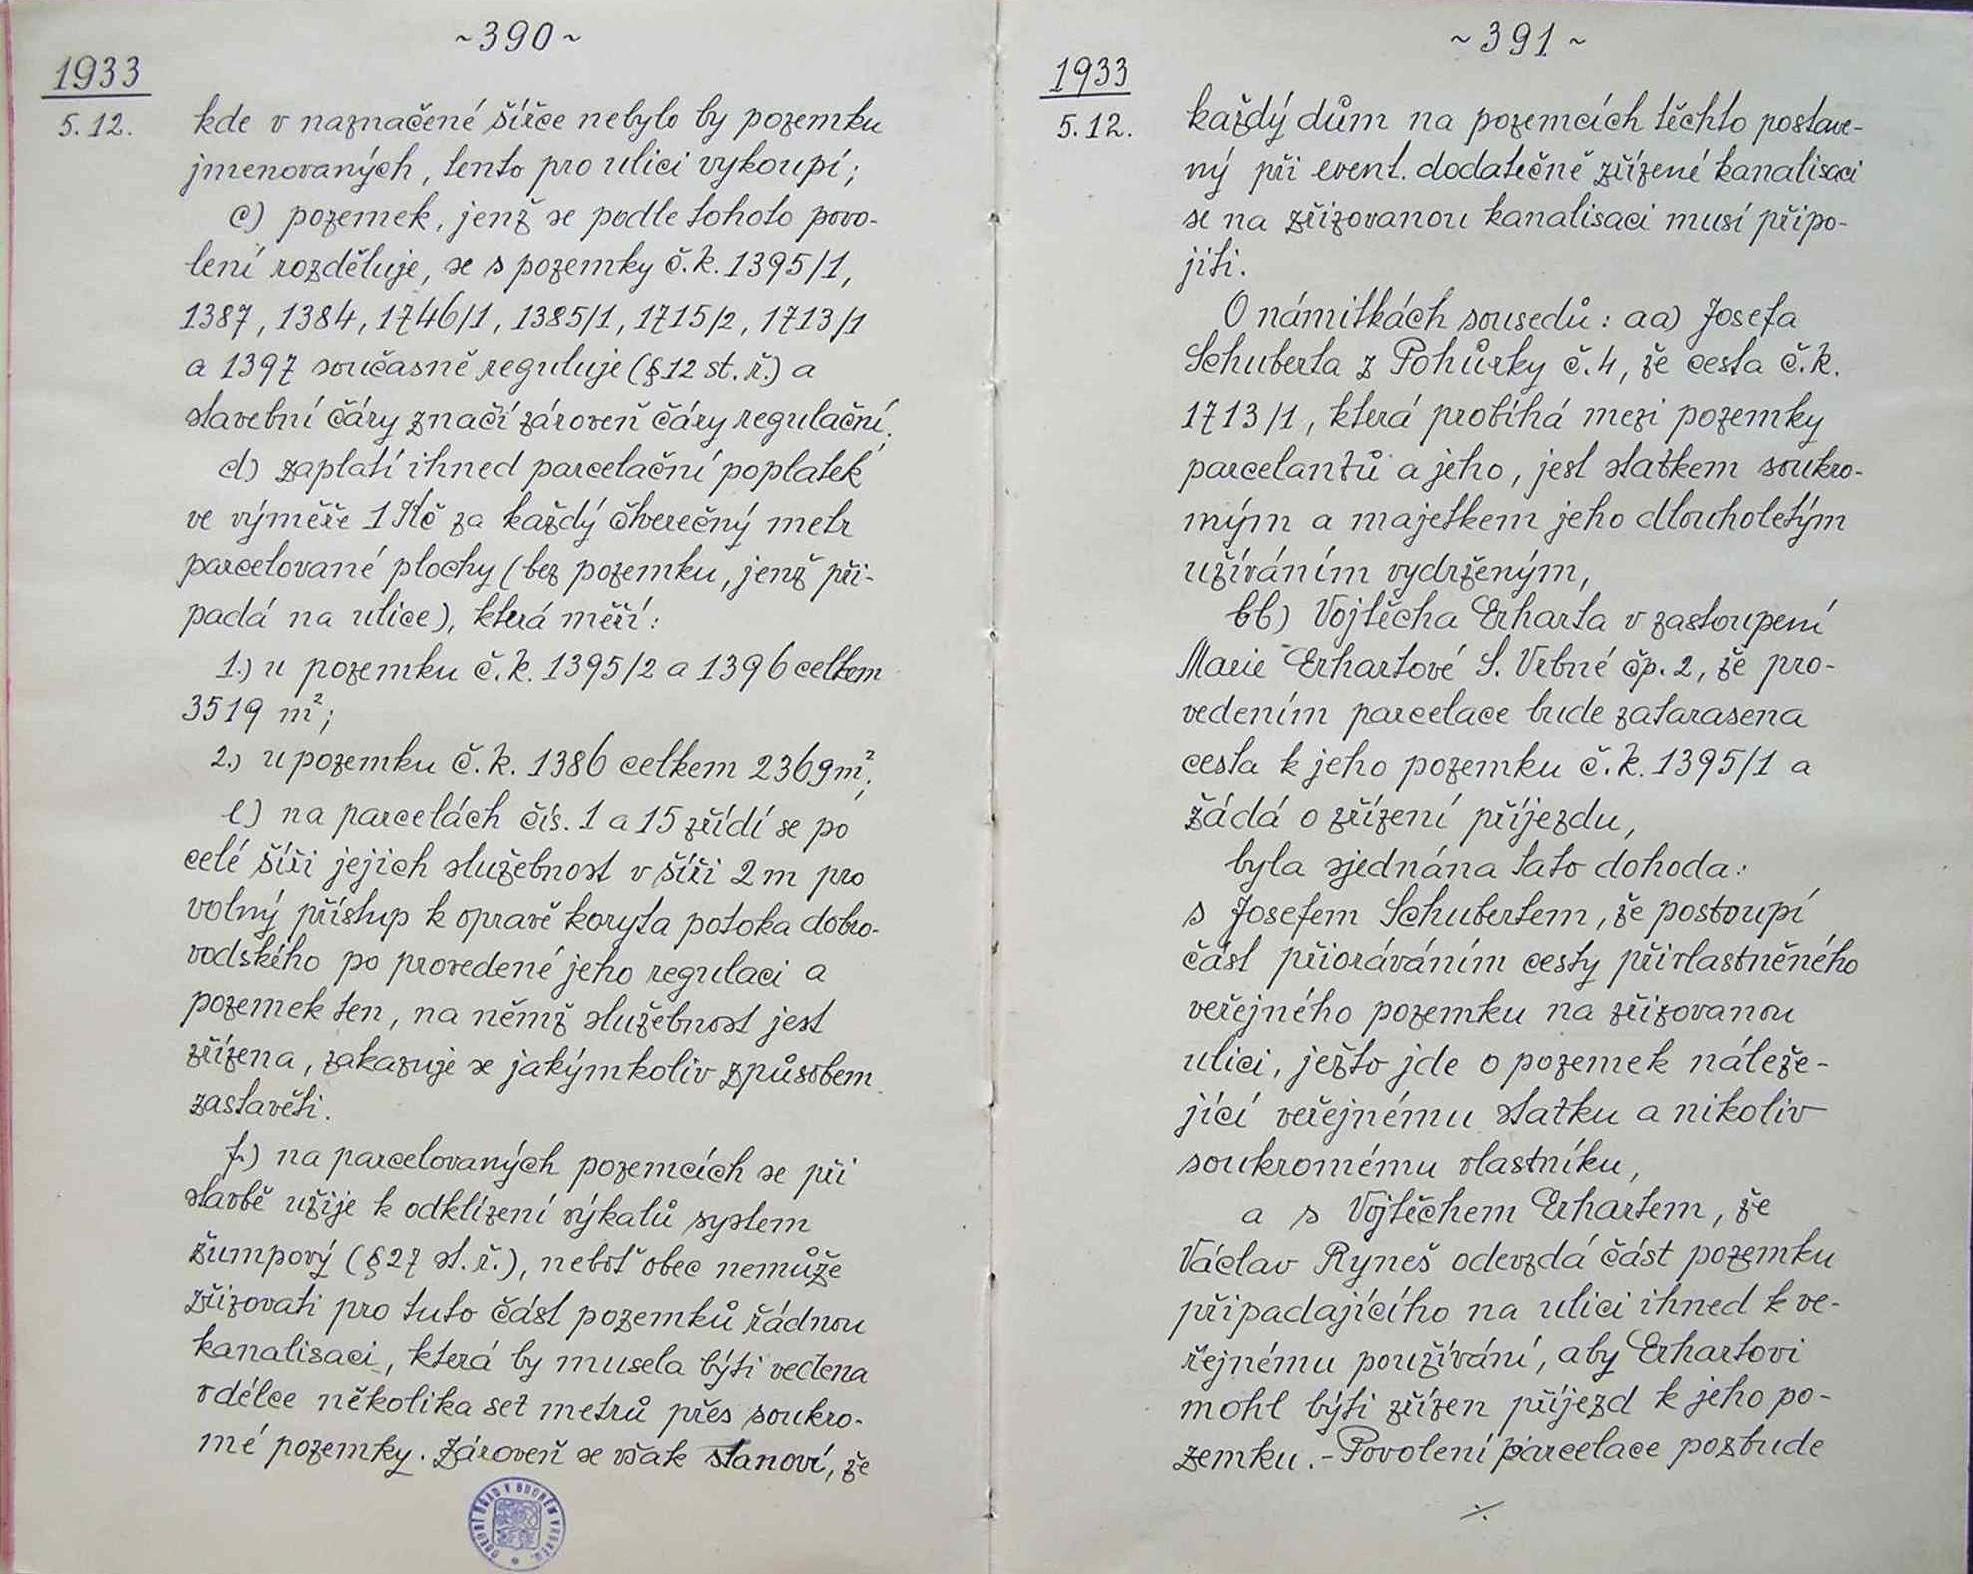 ~390~
1933
5.12.
kde v naznačené šířce nebylo by pozemku
jmenovaných, tento pro ulici vykoupí;
c) pozemek, jenž se podle tohoto povo-
lení rozděluje, se s pozemky č.k. 1395/1,
1387, 1384, 1746/1, 1385/1, 1715/2, 1713/1
a 1397 současně reguluje (§ 12 st. ř.) a
stavební čáry značí zároveň čáry regulační.
d) zaplatí ihned parcelační poplatek
ve výměře 1 Kč za každý čtverečný metr
parcelované plochy (bez pozemku, jenž při-
padá na ulice), která měří:
1.) u pozemku č.k. 1395/2 a 1396 celkem
3519 m²;
2.) u pozemku č.k. 1386 celkem 2369 m²;
e) na parcelách čís. 1 a 15 zřídí se po
celé šíři jejich služebnost v šíři 2 m pro
volný přístup k opravě koryta potoka dobro-
vodského po provedené jeho regulaci a
pozemek ten, na němž služebnost jest
zřízena, zakazuje se jakýmkoliv způsobem
zastavěti.
f.) na parcelovaných pozemcích se při
stavbě užije k odklízení výkalů system
žumpový (§ 27 st. ř.), neboť obec nemůže
zřizovati pro tuto část pozemků řádnou
kanalisaci, která by musela býti vedena
v délce několika set metrů přes soukro-
mé pozemky. Zároveň se však stanoví, že
~391~
1933
5.12.
každý dům na pozemcích těchto postave-
ný při event. dodatečně zřízené kanalisaci
se na zřizovanou kanalisaci musí připo-
jiti.
O námitkách sousedů: aa) Josefa
Schuberta z Pohůrky č. 4, že cesta č.k.
1713/1, která probíhá mezi pozemky
parcelantů a jeho, jest statkem soukro-
mým a majetkem jeho dlouholetým
užíváním vydrženým,
bb) Vojtěcha Erharta v zastoupení
Marie Erhartové S. Vrbné čp. 2, že pro-
vedením parcelace bude zatarasena
cesta k jeho pozemku č.k. 1395/1 a
žádá o zřízení příjezdu,
byla sjednána tato dohoda:
s Josefem Schubertem, že postoupí
část přioráváním cesty přivlastněného
veřejného pozemku na zřizovanou
ulici, ježto jde o pozemek náleže-
jící veřejnému statku a nikoliv
soukromému vlastníku,
a s Vojtěchem Erhartem, že
Václav Ryneš odevzdá část pozemku
připadajícího na ulici ihned k ve-
řejnému používání, aby Erhartovi
mohl býti zřízen příjezd k jeho po-
zemku. - Povolení parcelace pozbude
./.